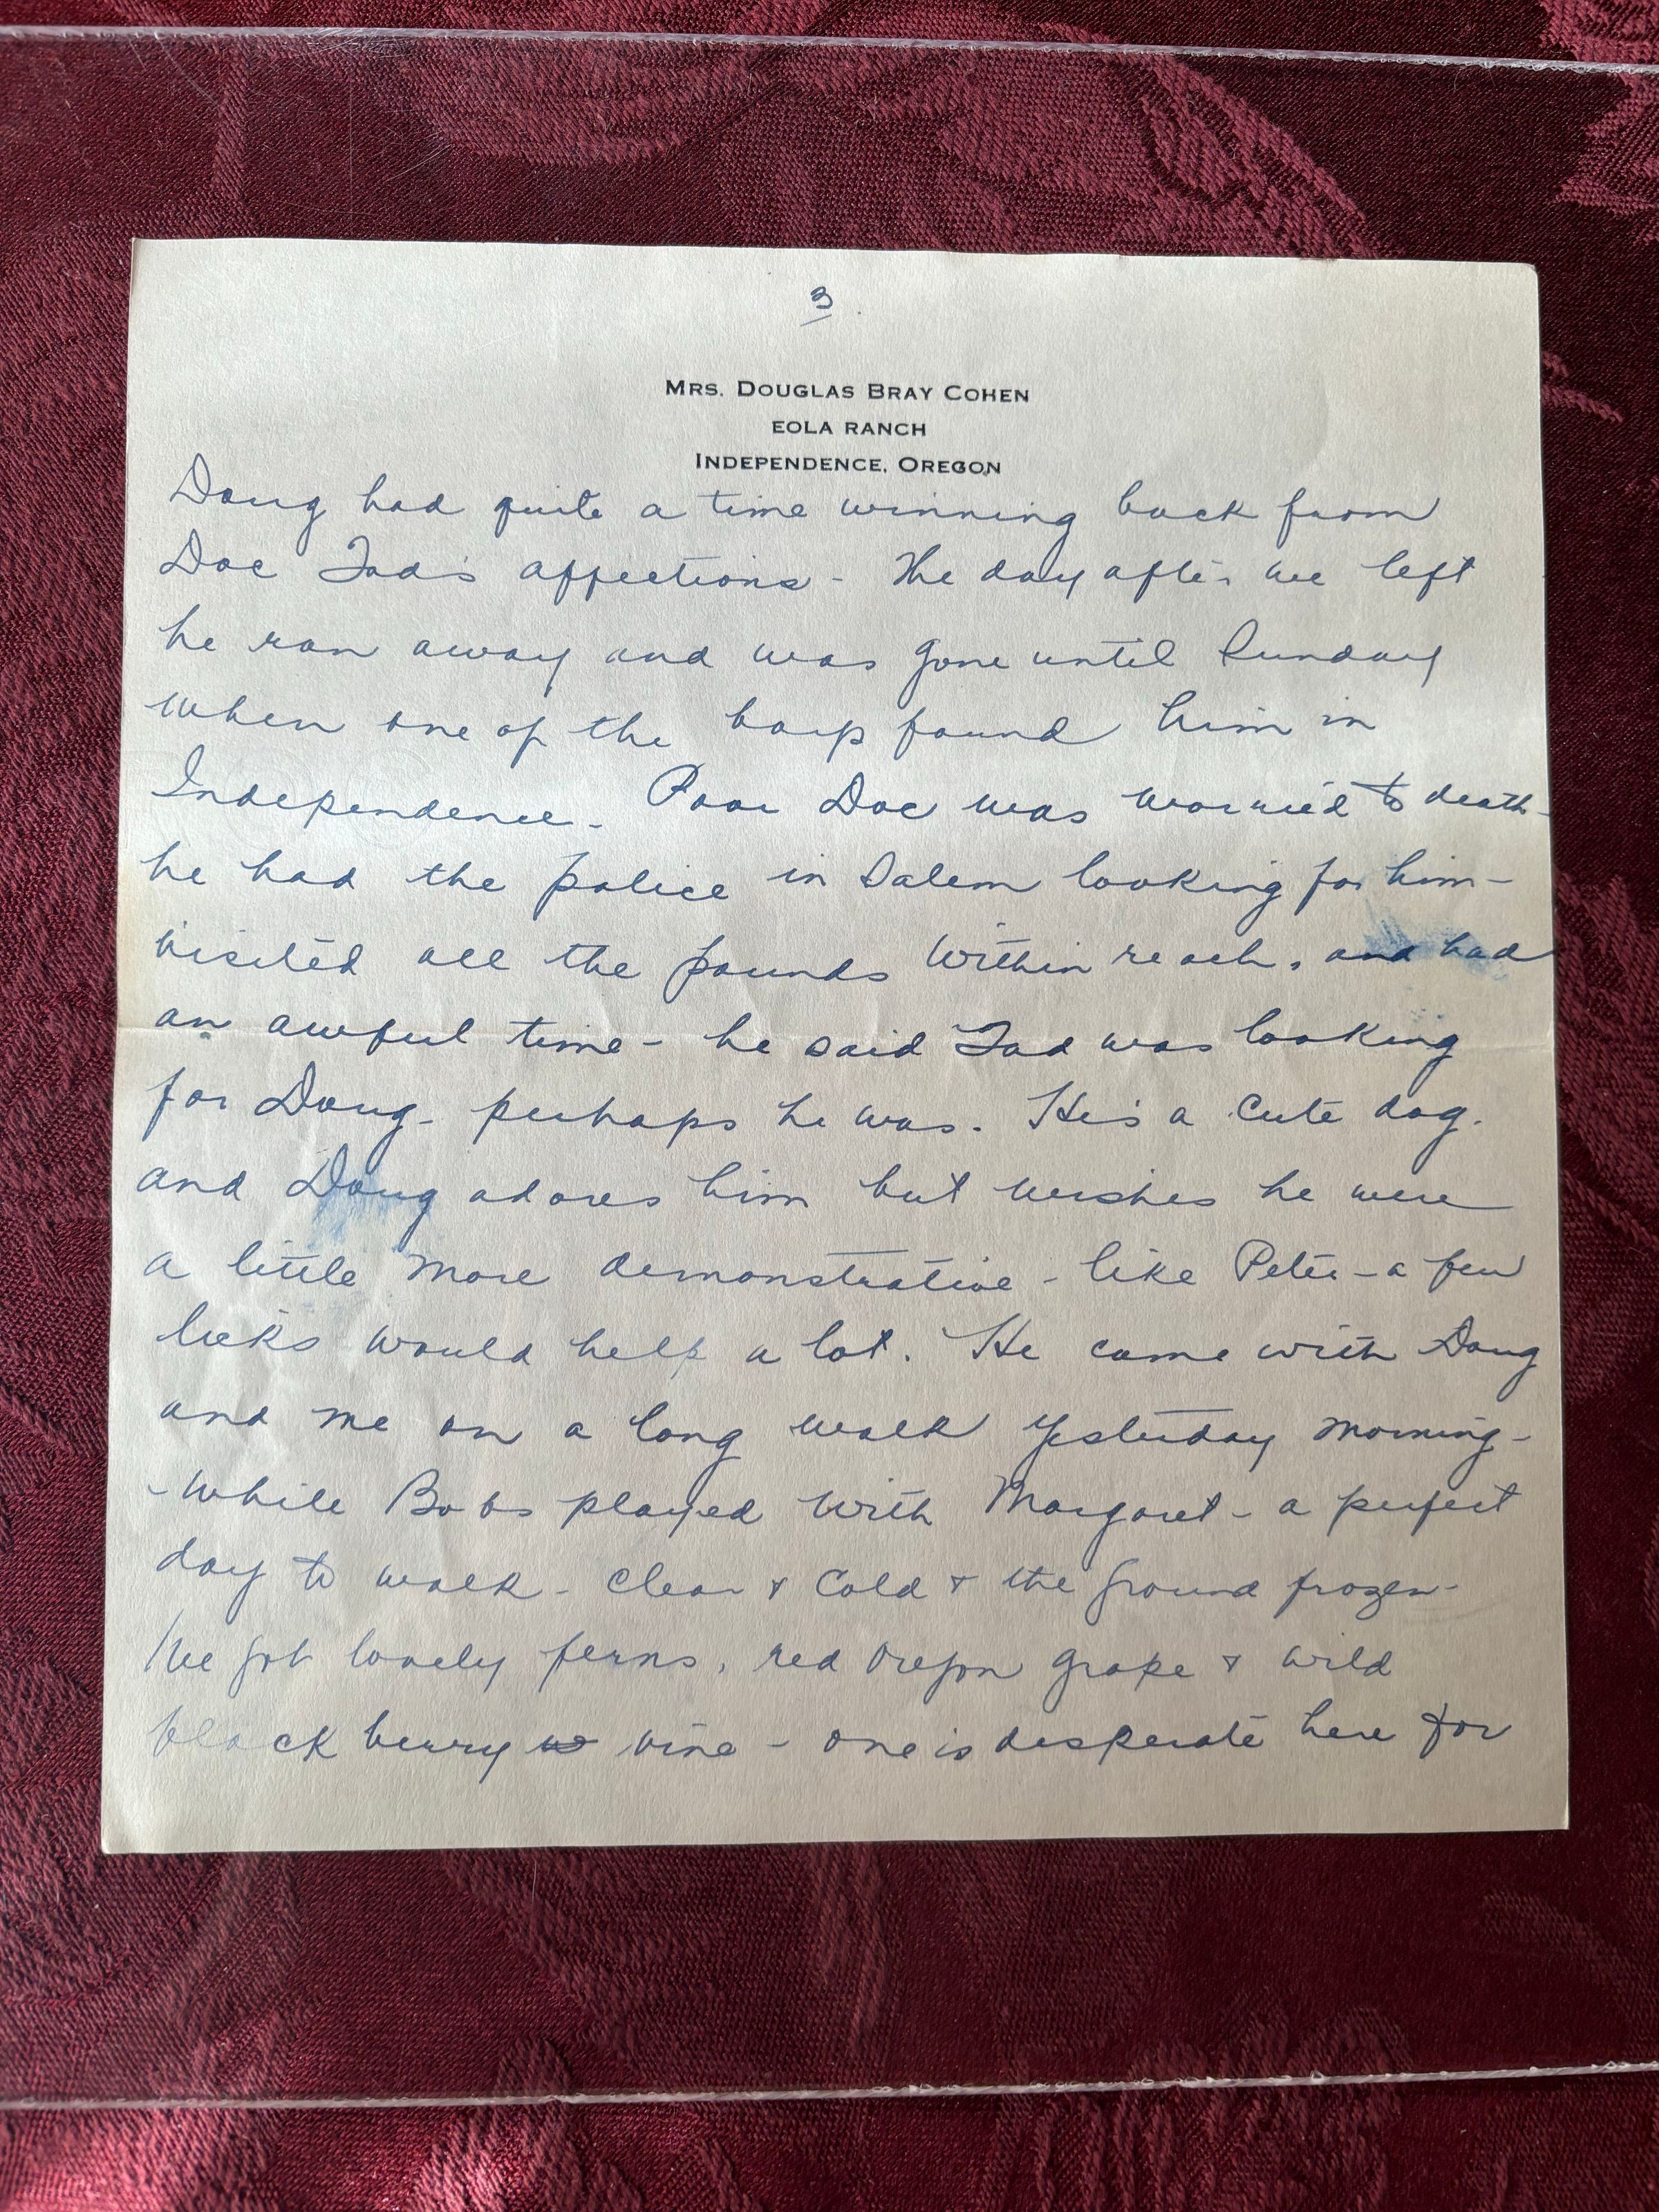 3.
MRS. DOUGLAS BRAY COHEN
EOLA RANCH
INDEPENDENCE, OREGON
Doug had quite a time winning back from
Doc Tad's affections - The day after we left
he ran away and was gone until Sunday
when one of the boys found him in
Independence. Poor Doc was worried to death -
he had the police in Salem looking for him -
visited all the pounds within reach, and had
an awful time - he said Tad was looking
for Doug - perhaps he was. He's a cute dog.
and Doug adores him but wishes he were
a little more demonstrative - like Peter - a few
licks would help a lot. He came with Doug
and me on a long walk yesterday morning -
- while Bobs played with Margaret - a perfect
day to walk - clear & cold & the ground frozen -
We got lovely ferns, red Oregon grape & wild
black berry vine - one is desperate here for